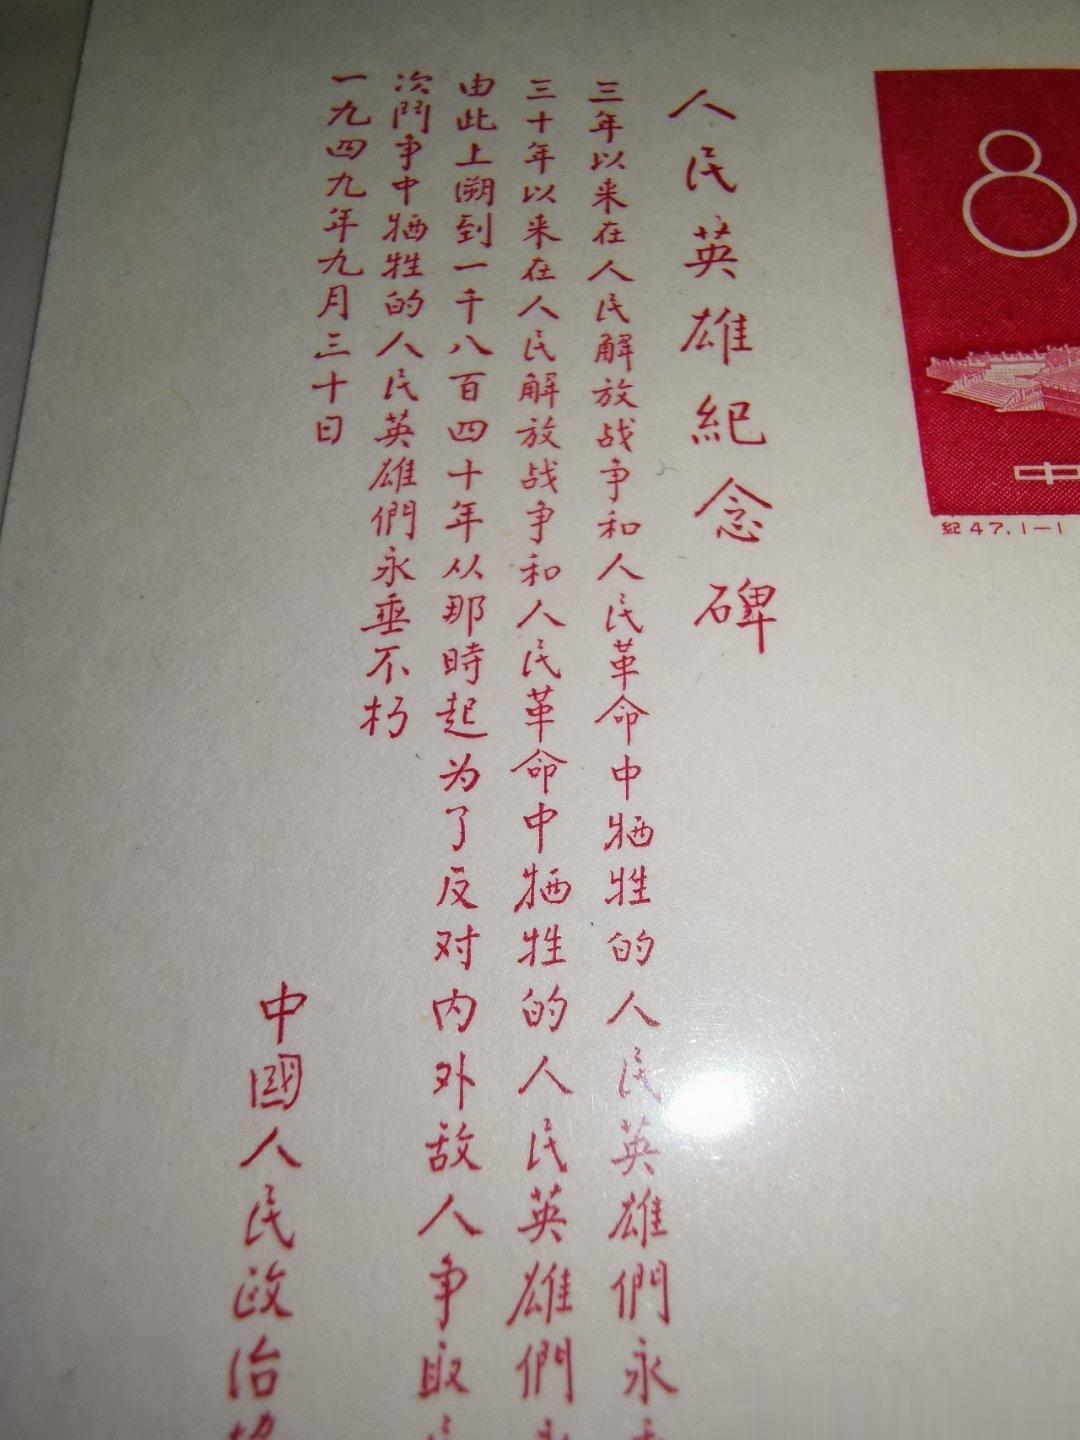 人民英雄紀念碑
三年以来在人民解放战争和人民革命中牺牲的人民英雄們永
三十年以来在人民解放战争和人民革命中牺牲的人民英雄們
由此上溯到一千八百四十年从那時起为了反对内外敌人争取
次鬥争中牺牲的人民英雄們永垂不朽
一九四九年九月三十日
中國人民政治
8
中
紀47.1-1